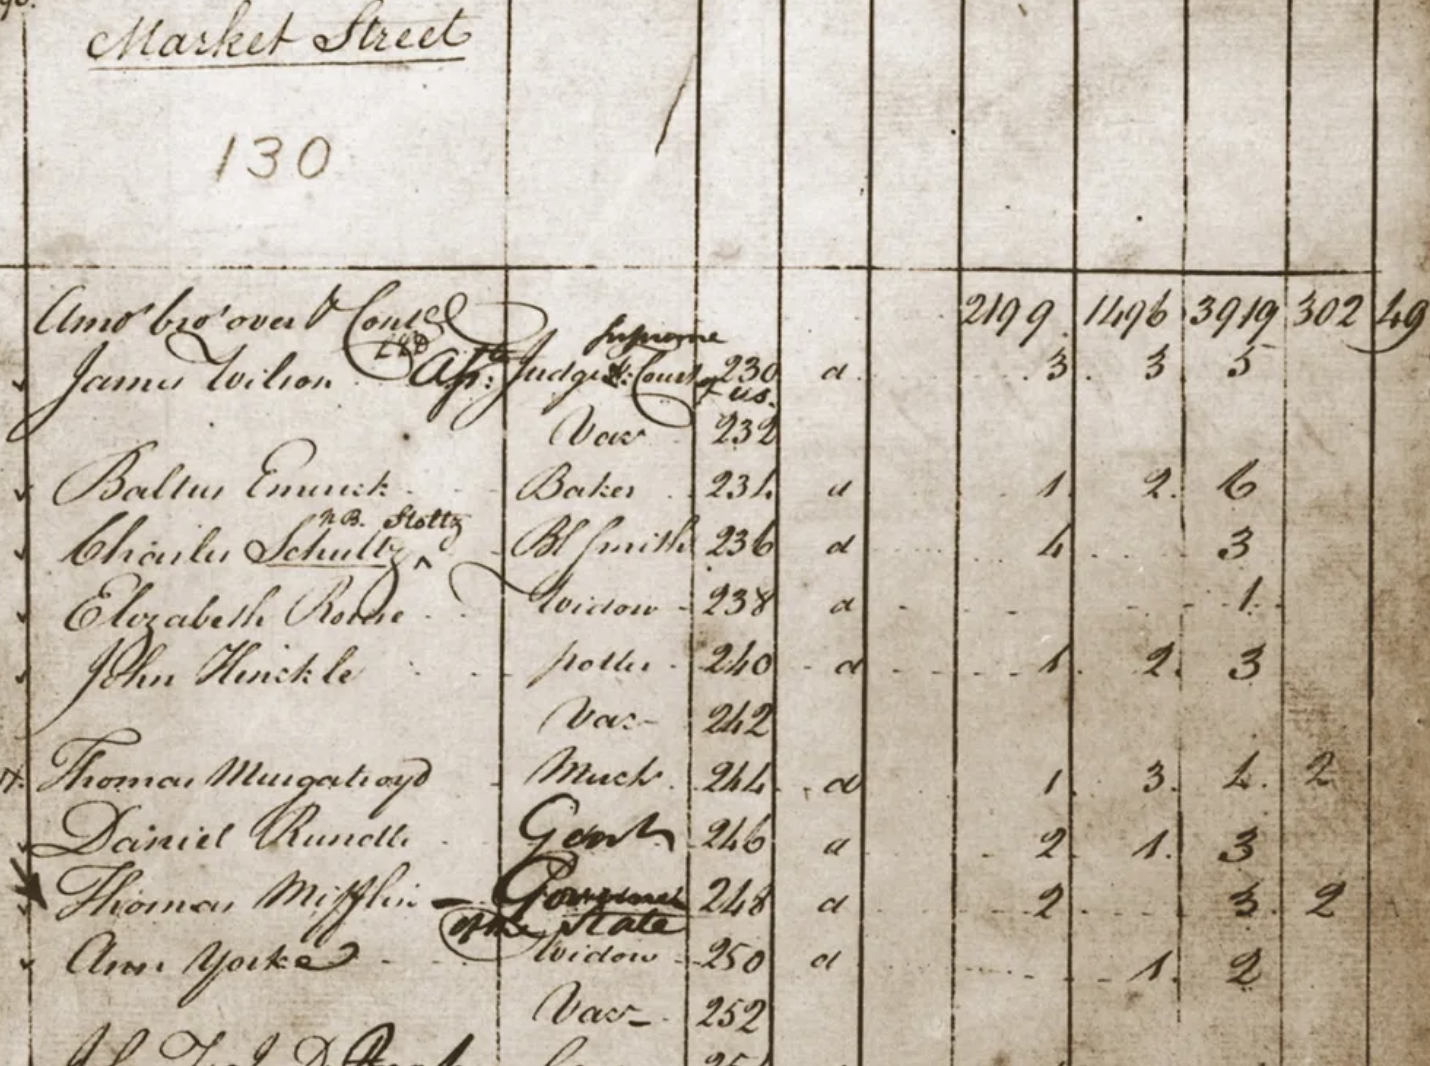 Market Street
130
Amot bro't over 2199 1496 3919 302 49
Supreme
James Wilson LLD Judge Court 230 d 3 3 5
of US.
Vac 232
Baltus Emrick Baker 234 d 1 2 6
N.B. Stoltz
Charles Schultz ^ Bl Smith 236 d 4 3
Elizabeth Widow 238 d 1
John Hinckle potter 240 d 1 2 3
Vac- 242
Thomas Murgatroyd Mercht 244 d 1 3 4 2
Daniel Rundle Gent 246 d 2 1 3
Thomas Mifflin - Governor 248 d 2 3 2
of the State
Ann Yorke Widow 250 d 1 2
Vac- 252